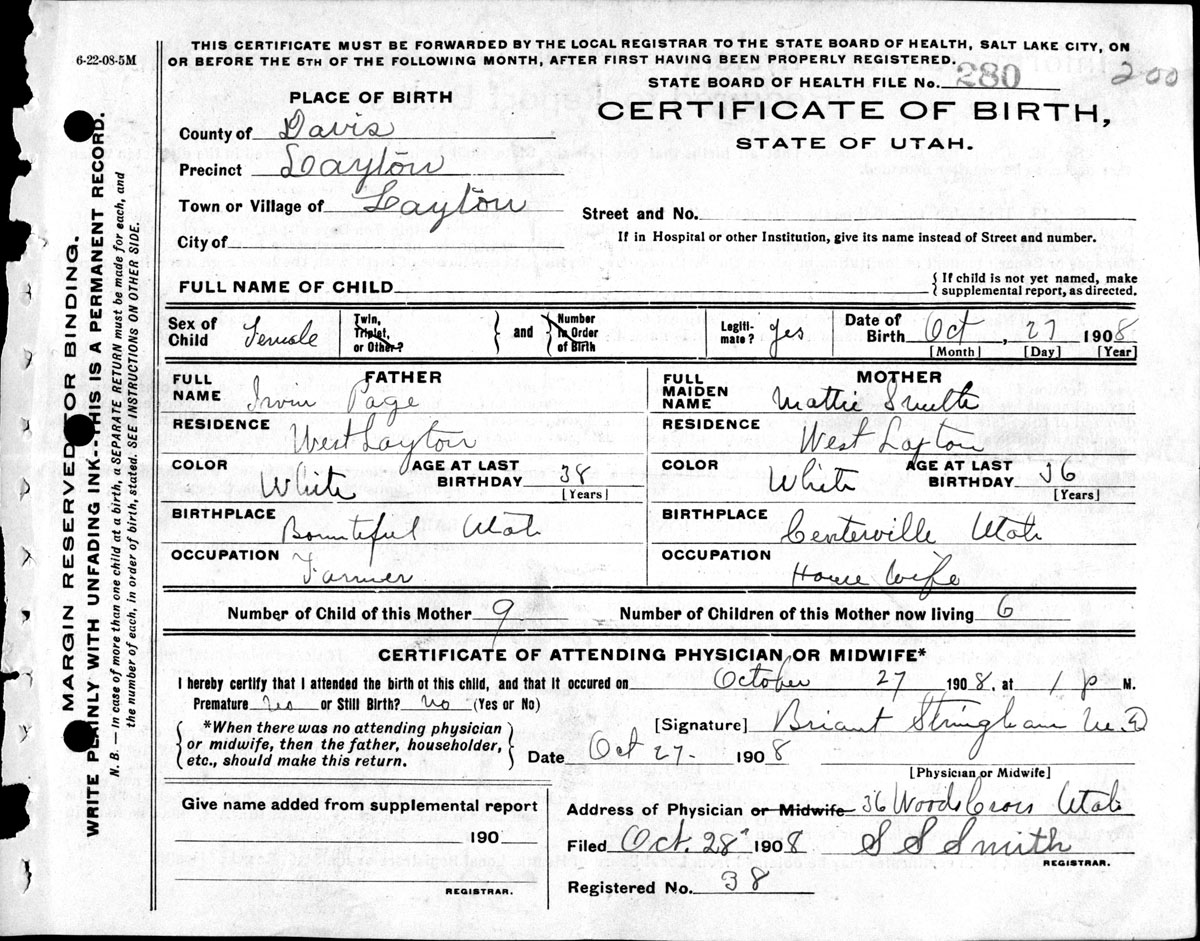 6-22-08-5M
THIS CERTIFICATE MUST BE FORWARDED BY THE LOCAL REGISTRAR TO THE STATE BOARD OF HEALTH, SALT LAKE CITY, ON
OR BEFORE THE 5TH OF THE FOLLOWING MONTH, AFTER FIRST HAVING BEEN PROPERLY REGISTERED.
STATE BOARD OF HEALTH FILE No. 280
200
CERTIFICATE OF BIRTH,
STATE OF UTAH.
PLACE OF BIRTH
County of Davis
Precinct Layton
Town or Village of Layton
Street and No.
City of
If in Hospital or other Institution, give its name instead of Street and number.
FULL NAME OF CHILD
{ If child is not yet named, make
supplemental report, as directed.
Sex of Child Female
Twin, Triplet, or Other? } and { Number in Order of Birth
Legiti-mate? yes
Date of Birth Oct, 27 1908
[Month] [Day] [Year]
FATHER
FULL NAME Irvin Page
RESIDENCE West Layton
COLOR White AGE AT LAST BIRTHDAY 38
[Years]
BIRTHPLACE Bountiful Utah
OCCUPATION Farmer
MOTHER
FULL MAIDEN NAME Mattie Smith
RESIDENCE West Layton
COLOR White AGE AT LAST BIRTHDAY 36
[Years]
BIRTHPLACE Centerville Utah
OCCUPATION House Wife
Number of Child of this Mother 9 Number of Children of this Mother now living 6
CERTIFICATE OF ATTENDING PHYSICIAN OR MIDWIFE*
I hereby certify that I attended the birth of this child, and that it occured on October 27 1908, at 1 P M.
Premature or Still Birth? No (Yes or No)
{ *When there was no attending physician
or midwife, then the father, householder,
etc., should make this return. }
[Signature] Briant Stringham M.D
Date Oct 27- 1908
[Physician or Midwife]
Give name added from supplemental report
190
REGISTRAR.
Address of Physician or Midwife 36 Woods Cross Utah
Filed Oct. 28" 1908 S S Smith
REGISTRAR.
Registered No. 38
MARGIN RESERVED FOR BINDING.
WRITE PLAINLY WITH UNFADING INK--THIS IS A PERMANENT RECORD.
N. B. — In case of more than one child at a birth, a SEPARATE RETURN must be made for each, and
the number of each, in order of birth, stated. SEE INSTRUCTIONS ON OTHER SIDE.